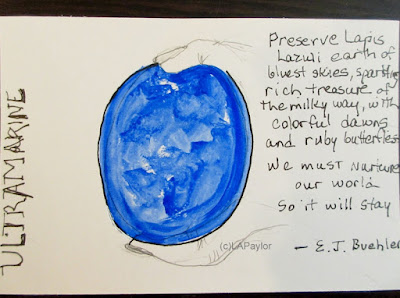 ULTRAMARINE
Preserve Lapis
Lazuli earth of
bluest skies, sparkling
rich treasure of
the milky way, with
colorful dawns
and ruby butterflies
We must Nurture
our world
so it will stay
— E.J. Buehler
(c)LAPaylor